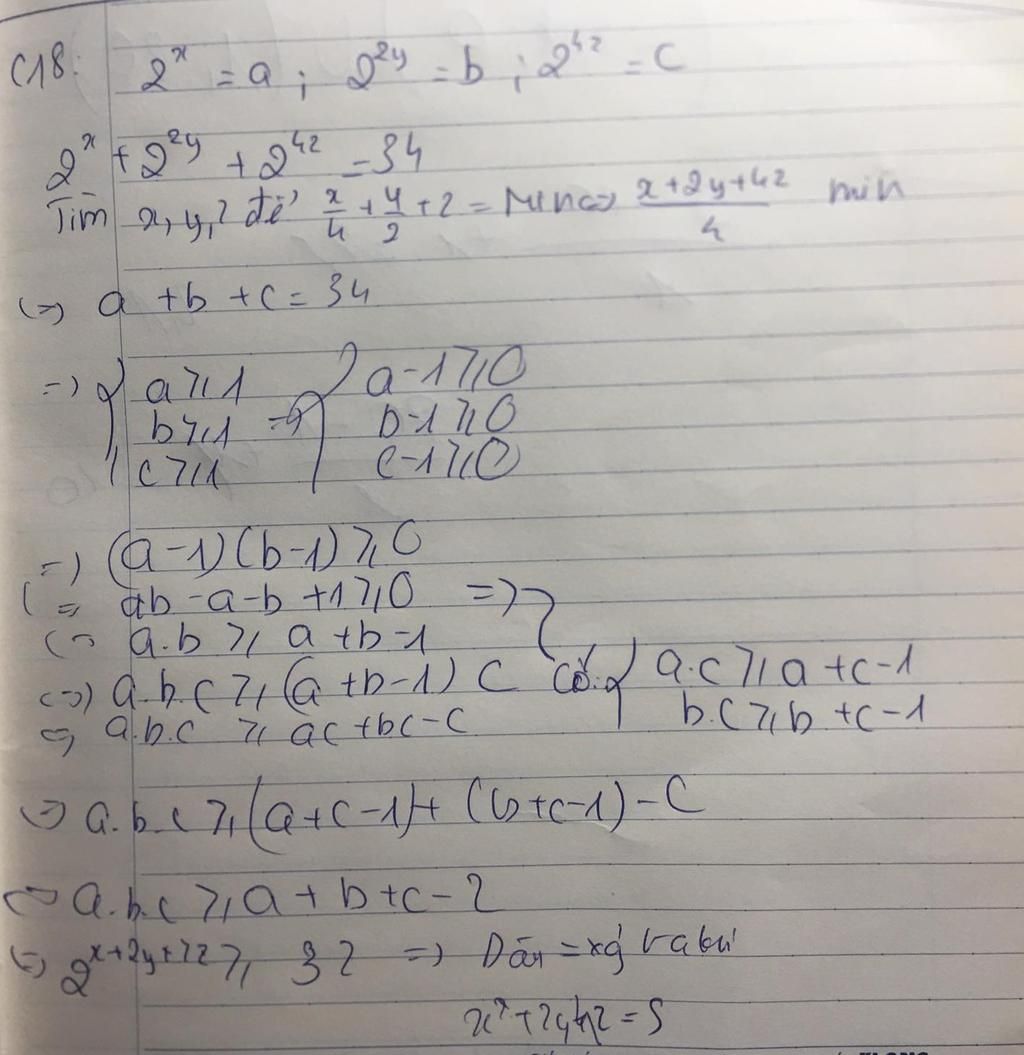 C18: 2^x = a ; 2^{2y} = b ; 2^{4z} = c
2^x + 2^{2y} + 2^{4z} = 34
Tìm x, y, z để x/4 + y/2 + z = Min <=> (x+2y+4z)/4 min
<=> a + b + c = 34
=> { a ⩾ 1 => { a-1 ⩾ 0
b ⩾ 1 b-1 ⩾ 0
c ⩾ 1 c-1 ⩾ 0
=> (a-1)(b-1) ⩾ 0
<=> ab - a - b + 1 ⩾ 0 =>
<=> a.b ⩾ a + b - 1
<=> a.b.c ⩾ (a+b-1) c Có: { a.c ⩾ a + c - 1
<=> a.b.c ⩾ ac + bc - c b.c ⩾ b + c - 1
=> a.b.c ⩾ (a+c-1) + (b+c-1) - c
<=> a.b.c ⩾ a + b + c - 2
<=> 2^{x+2y+4z} ⩾ 32 => Dấu = xảy ra khi
x+2y+4z = 5